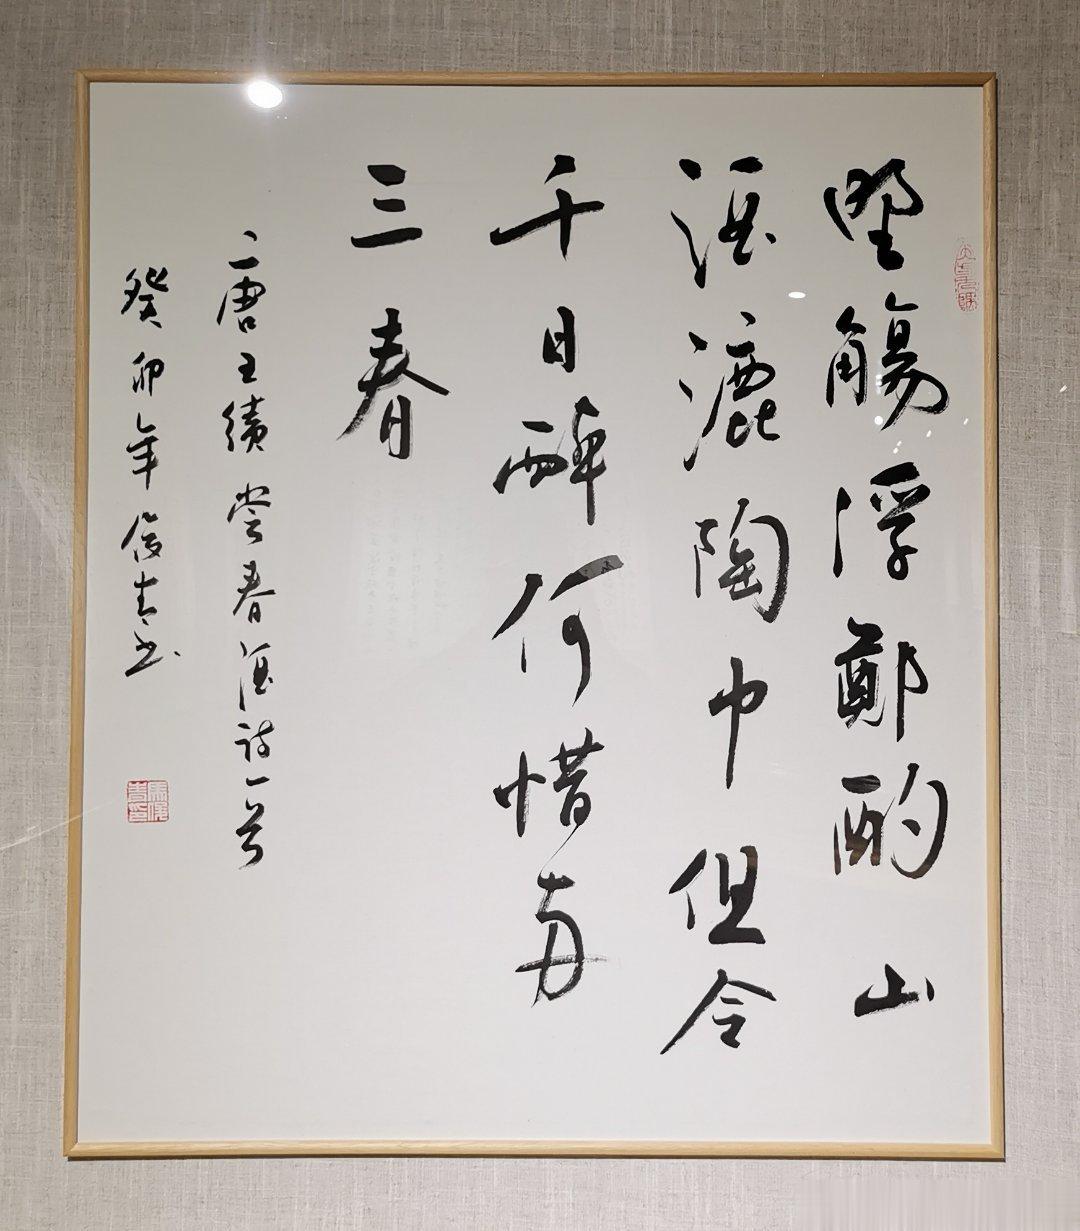 野觴浮鄭酌山
酒漉陶巾但令
千日醉何惜兩
三春
唐王績嘗春酒詩一首
癸卯年俊書